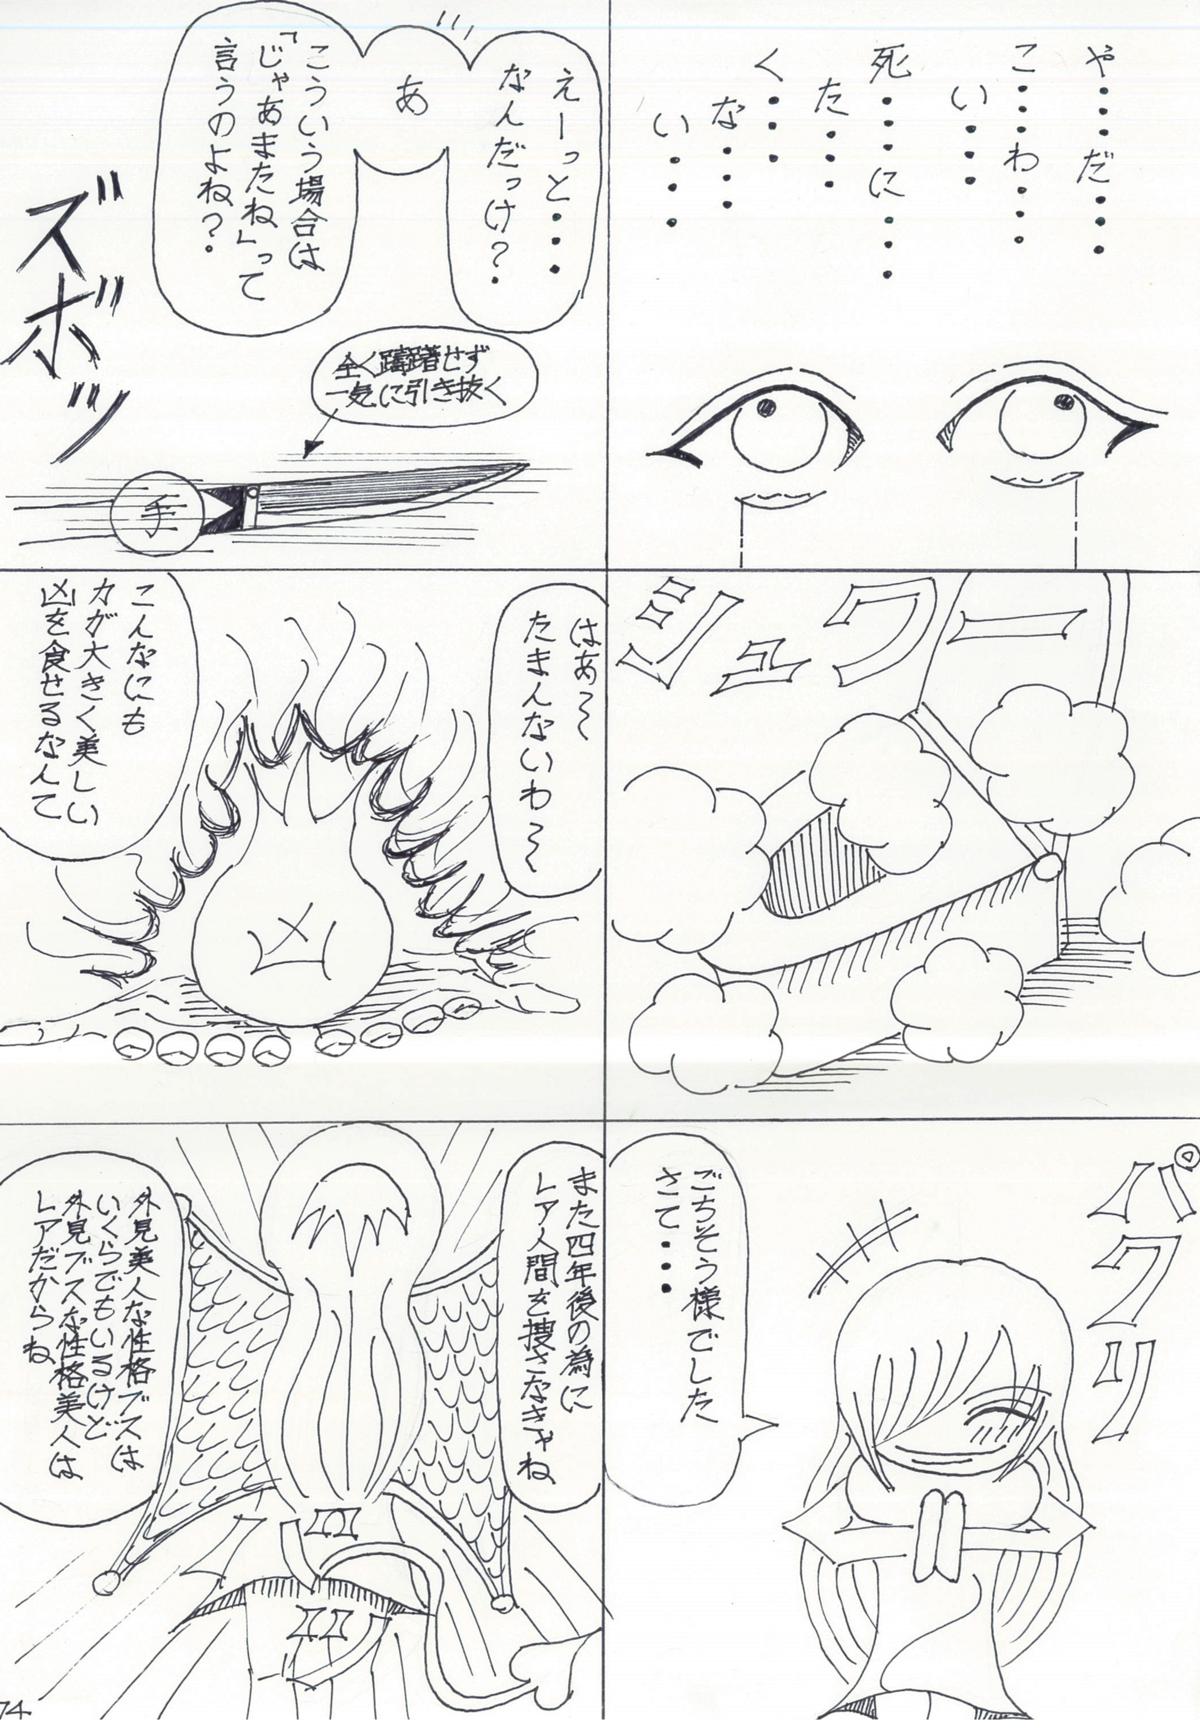 や・・・・だ・・・・
こ・・・・わ・・・・
い・・・・
死・・・・に・・・・
た・・・・
く・・・・
な・・・・
い・・・・
えーっと・・・・
なんだっけ?
あ
こういう場合は
「じゃあまたね」って
言うのよね?
ズボッ
全く躊躇せず
一気に引き抜く
手
シュワー
はあ〜
たまんないわ〜
こんなにも
力が大きく美しい
凶を食せるなんて
パクリ
ごちそう様でした
さて・・・・
また四年後の為に
レア人間を捜さなきゃね
外見美人な性格ブスは
いくらでもいるけど
外見ブスな性格美人は
レアだからね
74